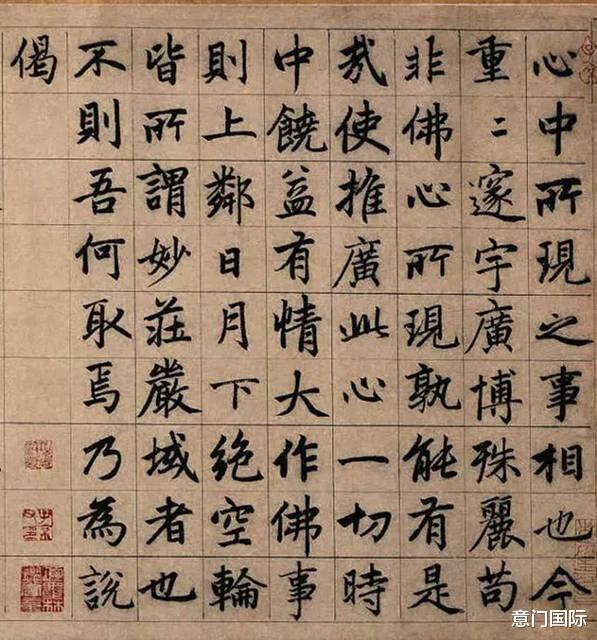 心中所現之事相也今
重〻邃宇廣博殊麗苟
非佛心所現孰能有是
哉使推廣此心一切時
中饒益有情大作佛事
則上鄰日月下絕空輪
皆所謂妙莊嚴域者也
不則吾何取焉乃為說
偈
意门国际